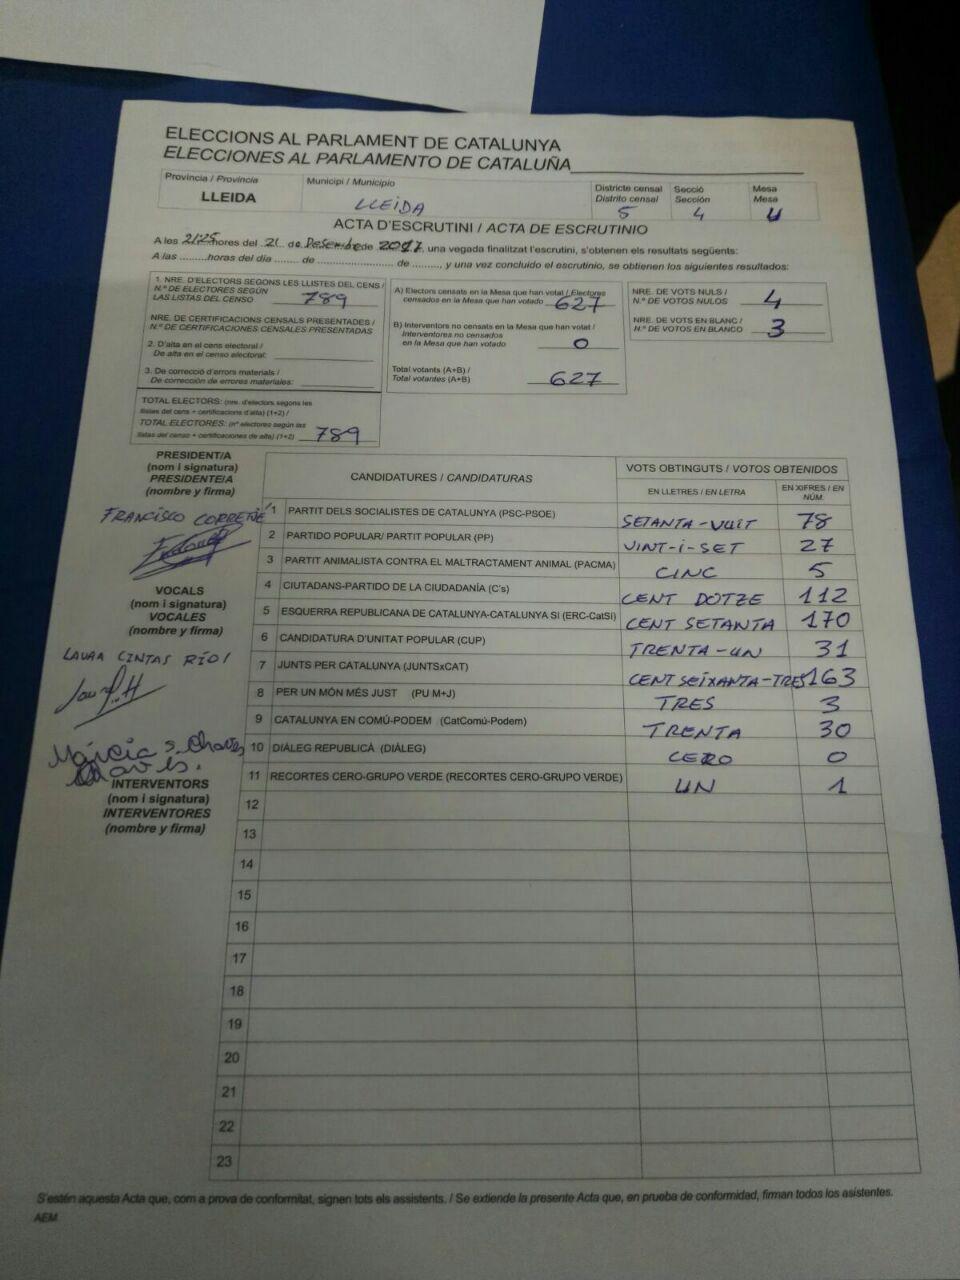 ELECCIONS AL PARLAMENT DE CATALUNYA
ELECCIONES AL PARLAMENTO DE CATALUÑA
Província / Provincia
LLEIDA
Municipi / Municipio
LLEIDA
Districte censal
Distrito censal
5
Secció
Sección
4
Mesa
Mesa
U
ACTA D'ESCRUTINI / ACTA DE ESCRUTINIO
A les 21:25 hores del 21 de Desembre de 2017, una vegada finalitzat l'escrutini, s'obtenen els resultats següents:
A las ........horas del día ....... de ...................... de ........, y una vez concluido el escrutinio, se obtienen los siguientes resultados:
1. NRE. D'ELECTORS SEGONS LES LLISTES DEL CENS /
N.º DE ELECTORES SEGÚN
LAS LISTAS DEL CENSO 789
NRE. DE CERTIFICACIONS CENSALS PRESENTADES /
N.º DE CERTIFICACIONES CENSALES PRESENTADAS
2. D'alta en el cens electoral /
De alta en el censo electoral:
3. De correcció d'errors materials /
De corrección de errores materiales:
TOTAL ELECTORS: (nre. d'electors segons les
llistes del cens + certificacions d'alta) (1+2) /
TOTAL ELECTORES: (nº electores según las
listas del censo + certificaciones de alta) (1+2) 789
A) Electors censats en la Mesa que han votat / Electores
censados en la Mesa que han votado 627
B) Interventors no censats en la Mesa que han votat /
Interventores no censados
en la Mesa que han votado 0
Total votants (A+B) /
Total votantes (A+B) 627
NRE. DE VOTS NULS /
N.º DE VOTOS NULOS 4
NRE. DE VOTS EN BLANC /
N.º DE VOTOS EN BLANCO 3
PRESIDENT/A
(nom i signatura)
PRESIDENTE/A
(nombre y firma)
FRANCISCO
VOCALS
(nom i signatura)
VOCALES
(nombre y firma)
LAURA CINTAS RÍOS
Márcia S. Chaves
Chaves.
INTERVENTORS
(nom i signatura)
INTERVENTORES
(nombre y firma)
CANDIDATURES / CANDIDATURAS
VOTS OBTINGUTS / VOTOS OBTENIDOS
EN LLETRES / EN LETRA
EN XIFRES / EN NÚM.
1 PARTIT DELS SOCIALISTES DE CATALUNYA (PSC-PSOE) SETANTA-VUIT 78
2 PARTIDO POPULAR/ PARTIT POPULAR (PP) VINT-i-SET 27
3 PARTIT ANIMALISTA CONTRA EL MALTRACTAMENT ANIMAL (PACMA) CINC 5
4 CIUTADANS-PARTIDO DE LA CIUDADANÍA (C's) CENT DOTZE 112
5 ESQUERRA REPUBLICANA DE CATALUNYA-CATALUNYA SÍ (ERC-CatSí) CENT SETANTA 170
6 CANDIDATURA D'UNITAT POPULAR (CUP) TRENTA-UN 31
7 JUNTS PER CATALUNYA (JUNTSxCAT) CENT SEIXANTA-TRES 163
8 PER UN MÓN MÉS JUST (PU M+J) TRES 3
9 CATALUNYA EN COMÚ-PODEM (CatComú-Podem) TRENTA 30
10 DIÀLEG REPUBLICÀ (DIÀLEG) CERO 0
11 RECORTES CERO-GRUPO VERDE (RECORTES CERO-GRUPO VERDE) UN 1
12
13
14
15
16
17
18
19
20
21
22
23
S'estén aquesta Acta que, com a prova de conformitat, signen tots els assistents. / Se extiende la presente Acta que, en prueba de conformidad, firman todos los asistentes.
AEM